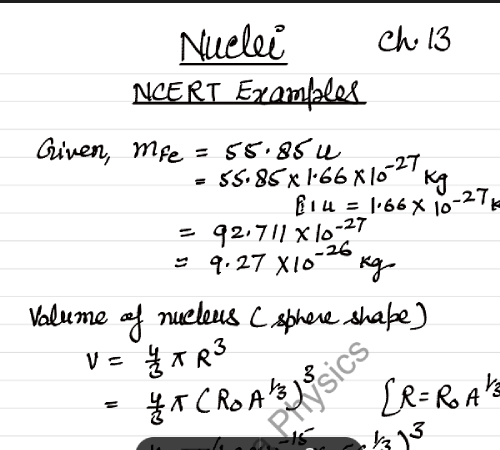 Nuclei Ch. 13
NCERT Examples
Given, mFe = 55.85 u
= 55.85 × 1.66 × 10⁻²⁷ kg
[∵ 1 u = 1.66 × 10⁻²⁷ k
= 92.711 × 10⁻²⁷
= 9.27 × 10⁻²⁶ kg
Volume of nucleus (sphere shape)
V = 4/3 π R³
= 4/3 π (R₀ A^1/3)³ [R = R₀ A^1/3
Physics